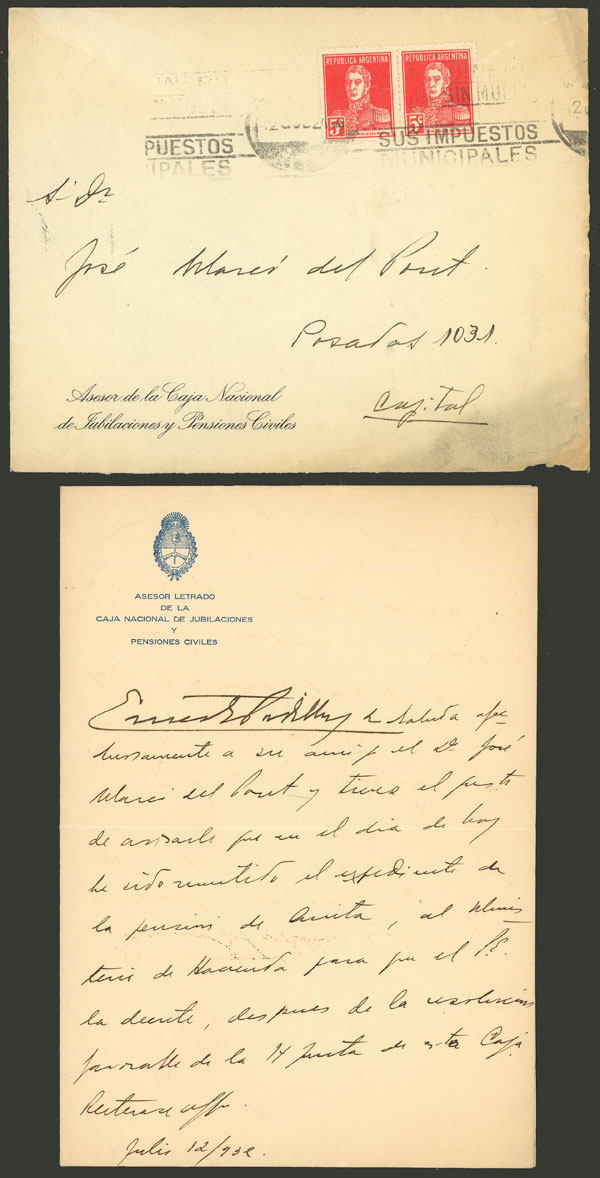 REPUBLICA ARGENTINA REPUBLICA ARGENTINA
5c 5c
SUS IMPUESTOS
MUNICIPALES
PUESTOS
IPALES
S. Dr
José Marcó del Pont.
Posadas 1031.
Capital
Asesor de la Caja Nacional
de Jubilaciones y Pensiones Civiles
ASESOR LETRADO
DE LA
CAJA NACIONAL DE JUBILACIONES
Y
PENSIONES CIVILES
saluda afec-
tuosamente a su amigo el Dr José
Marcó del Pont y tiene el gusto
de avisarle que en el dia de hoy
ha sido remitido el expediente de
la pension de Anita, al Minis
terio de Hacienda para que el P.E.
la decrete, despues de la resolucion
favorable de la H Junta de esta Caja.
Reiterase affo.
Julio 12/932.